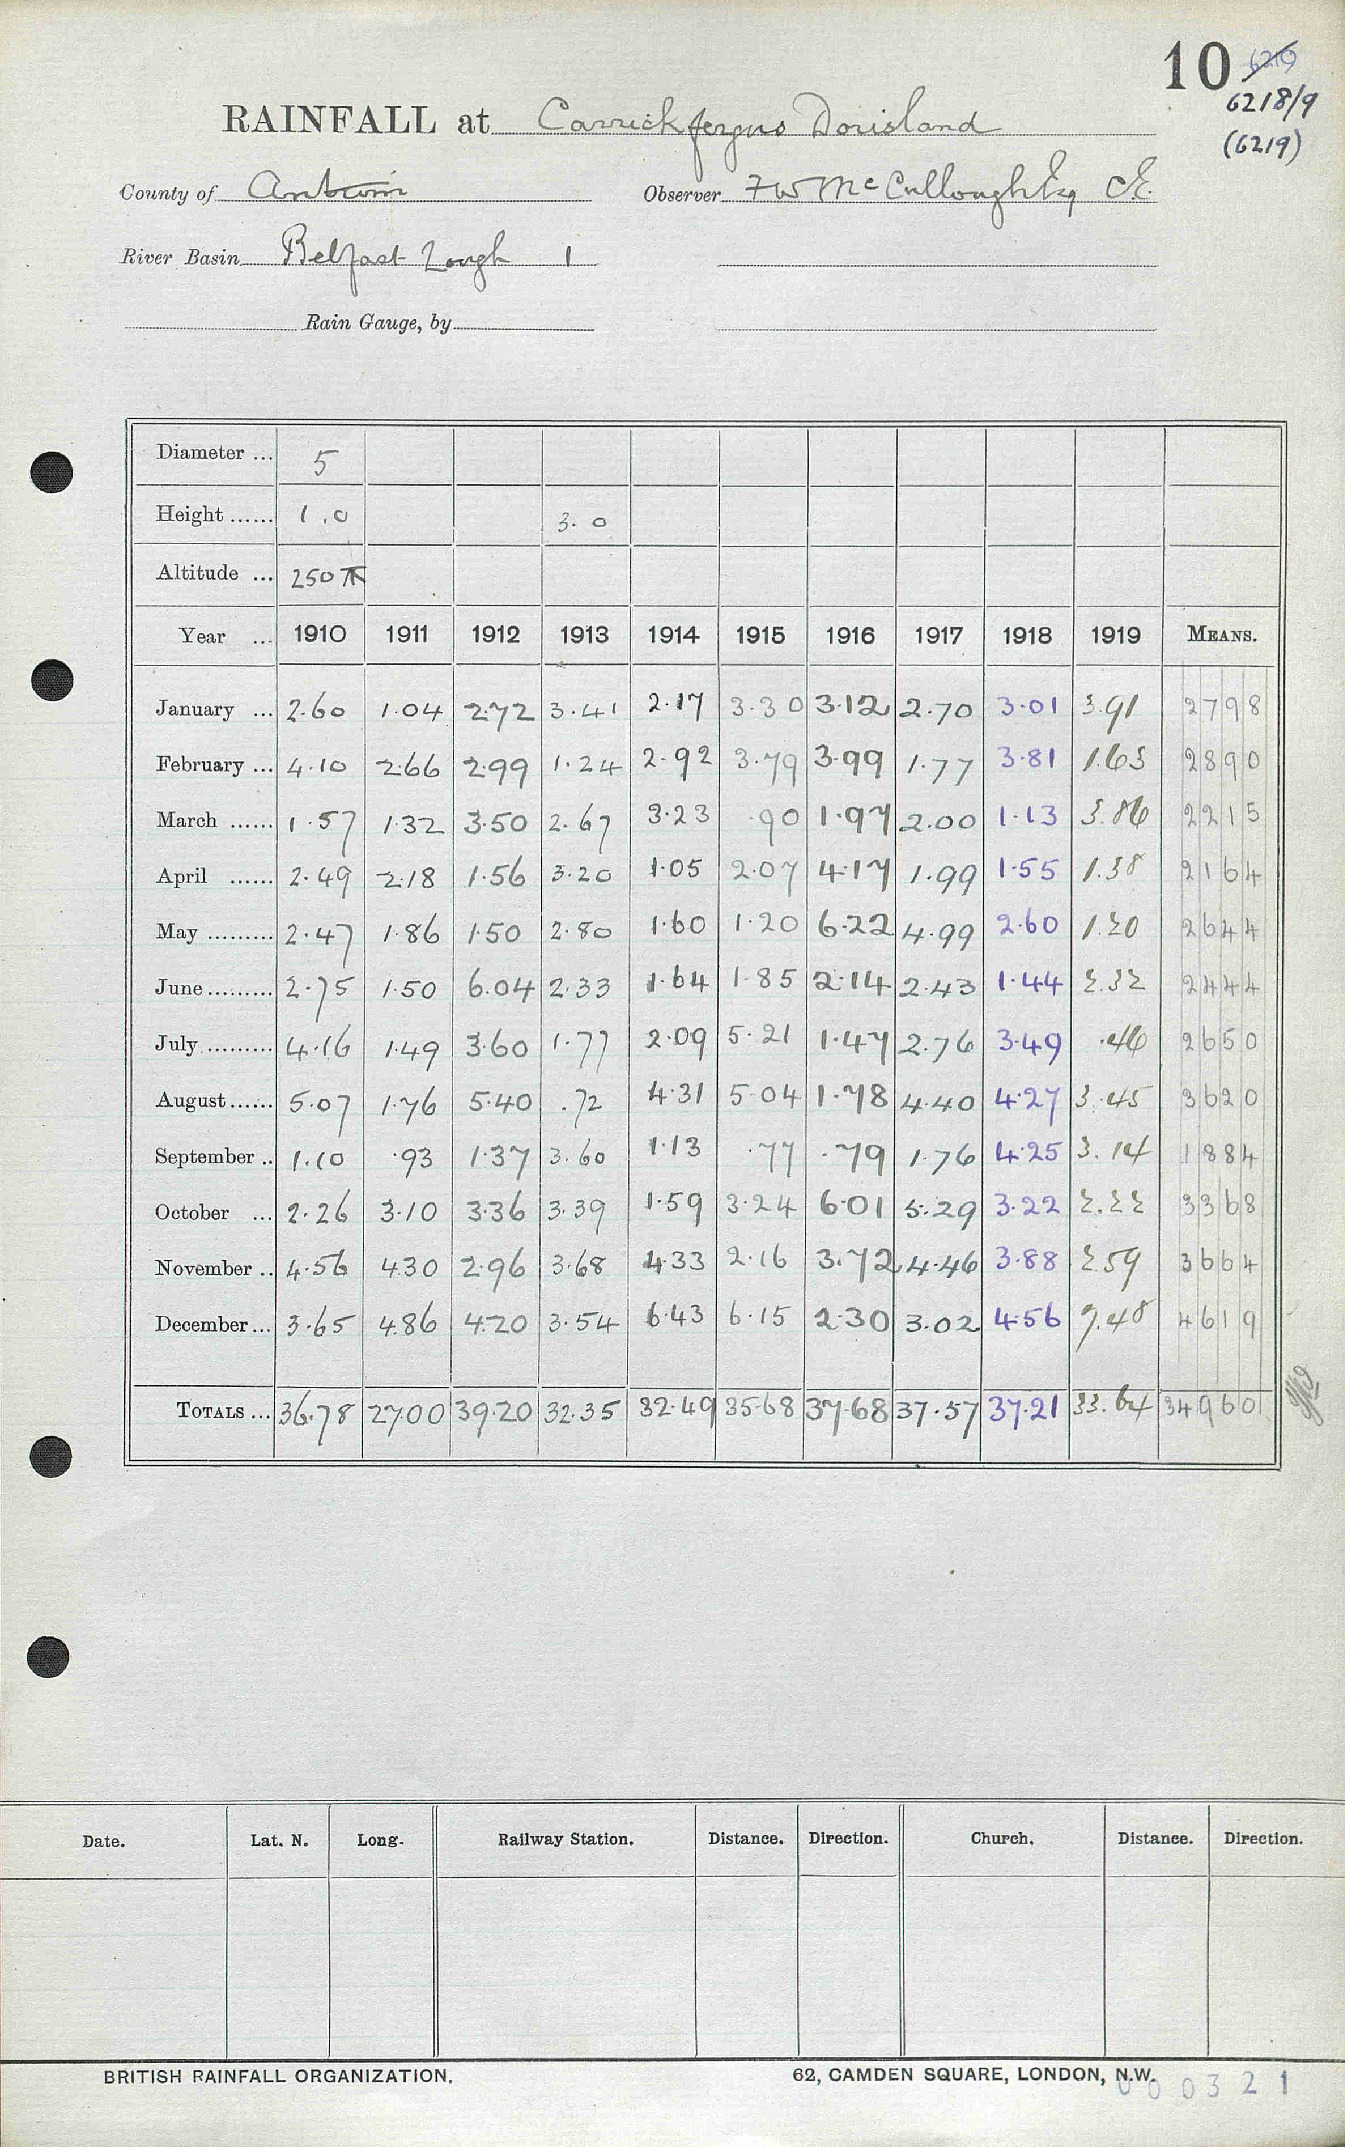 10 6219
6218/9
(6219)
RAINFALL at Carrickfergus Dorisland
County of Antrim Observer F W McCullough Esq CE.
River Basin Belfast Lough 1
Rain Gauge, by
Diameter ... 5
Height ...... 1.0 3.0
Altitude ... 250
Year ... 1910 1911 1912 1913 1914 1915 1916 1917 1918 1919 MEANS.
January ... 2.60 1.04 2.72 3.41 2.17 3.30 3.12 2.70 3.01 3.91 2798
February ... 4.10 2.66 2.99 1.24 2.92 3.79 3.99 1.77 3.81 1.63 2890
March ...... 1.57 1.32 3.50 2.67 3.23 .90 1.97 2.00 1.13 3.86 2215
April ...... 2.49 2.18 1.56 3.20 1.05 2.07 4.17 1.99 1.55 1.38 2164
May ......... 2.47 1.86 1.50 2.80 1.60 1.20 6.22 4.99 2.60 1.20 2644
June ......... 2.75 1.50 6.04 2.33 1.64 1.85 2.14 2.43 1.44 2.32 2444
July ......... 4.16 1.49 3.60 1.77 2.09 5.21 1.47 2.76 3.49 .46 2650
August ...... 5.07 1.76 5.40 .72 4.31 5.04 1.78 4.40 4.27 3.45 3620
September .. 1.10 .93 1.37 3.60 1.13 .77 .79 1.76 4.25 3.14 1884
October ... 2.26 3.10 3.36 3.39 1.59 3.24 6.01 5.29 3.22 2.22 3368
November .. 4.56 4.30 2.96 3.68 4.33 2.16 3.72 4.46 3.88 2.59 3664
December ... 3.65 4.86 4.20 3.54 6.43 6.15 2.30 3.02 4.56 7.48 4619
TOTALS ... 36.78 27.00 39.20 32.35 32.49 35.68 37.68 37.57 37.21 33.64 34960
Date. Lat. N. Long. Railway Station. Distance. Direction. Church. Distance. Direction.
BRITISH RAINFALL ORGANIZATION. 62, CAMDEN SQUARE, LONDON, N.W.
000321